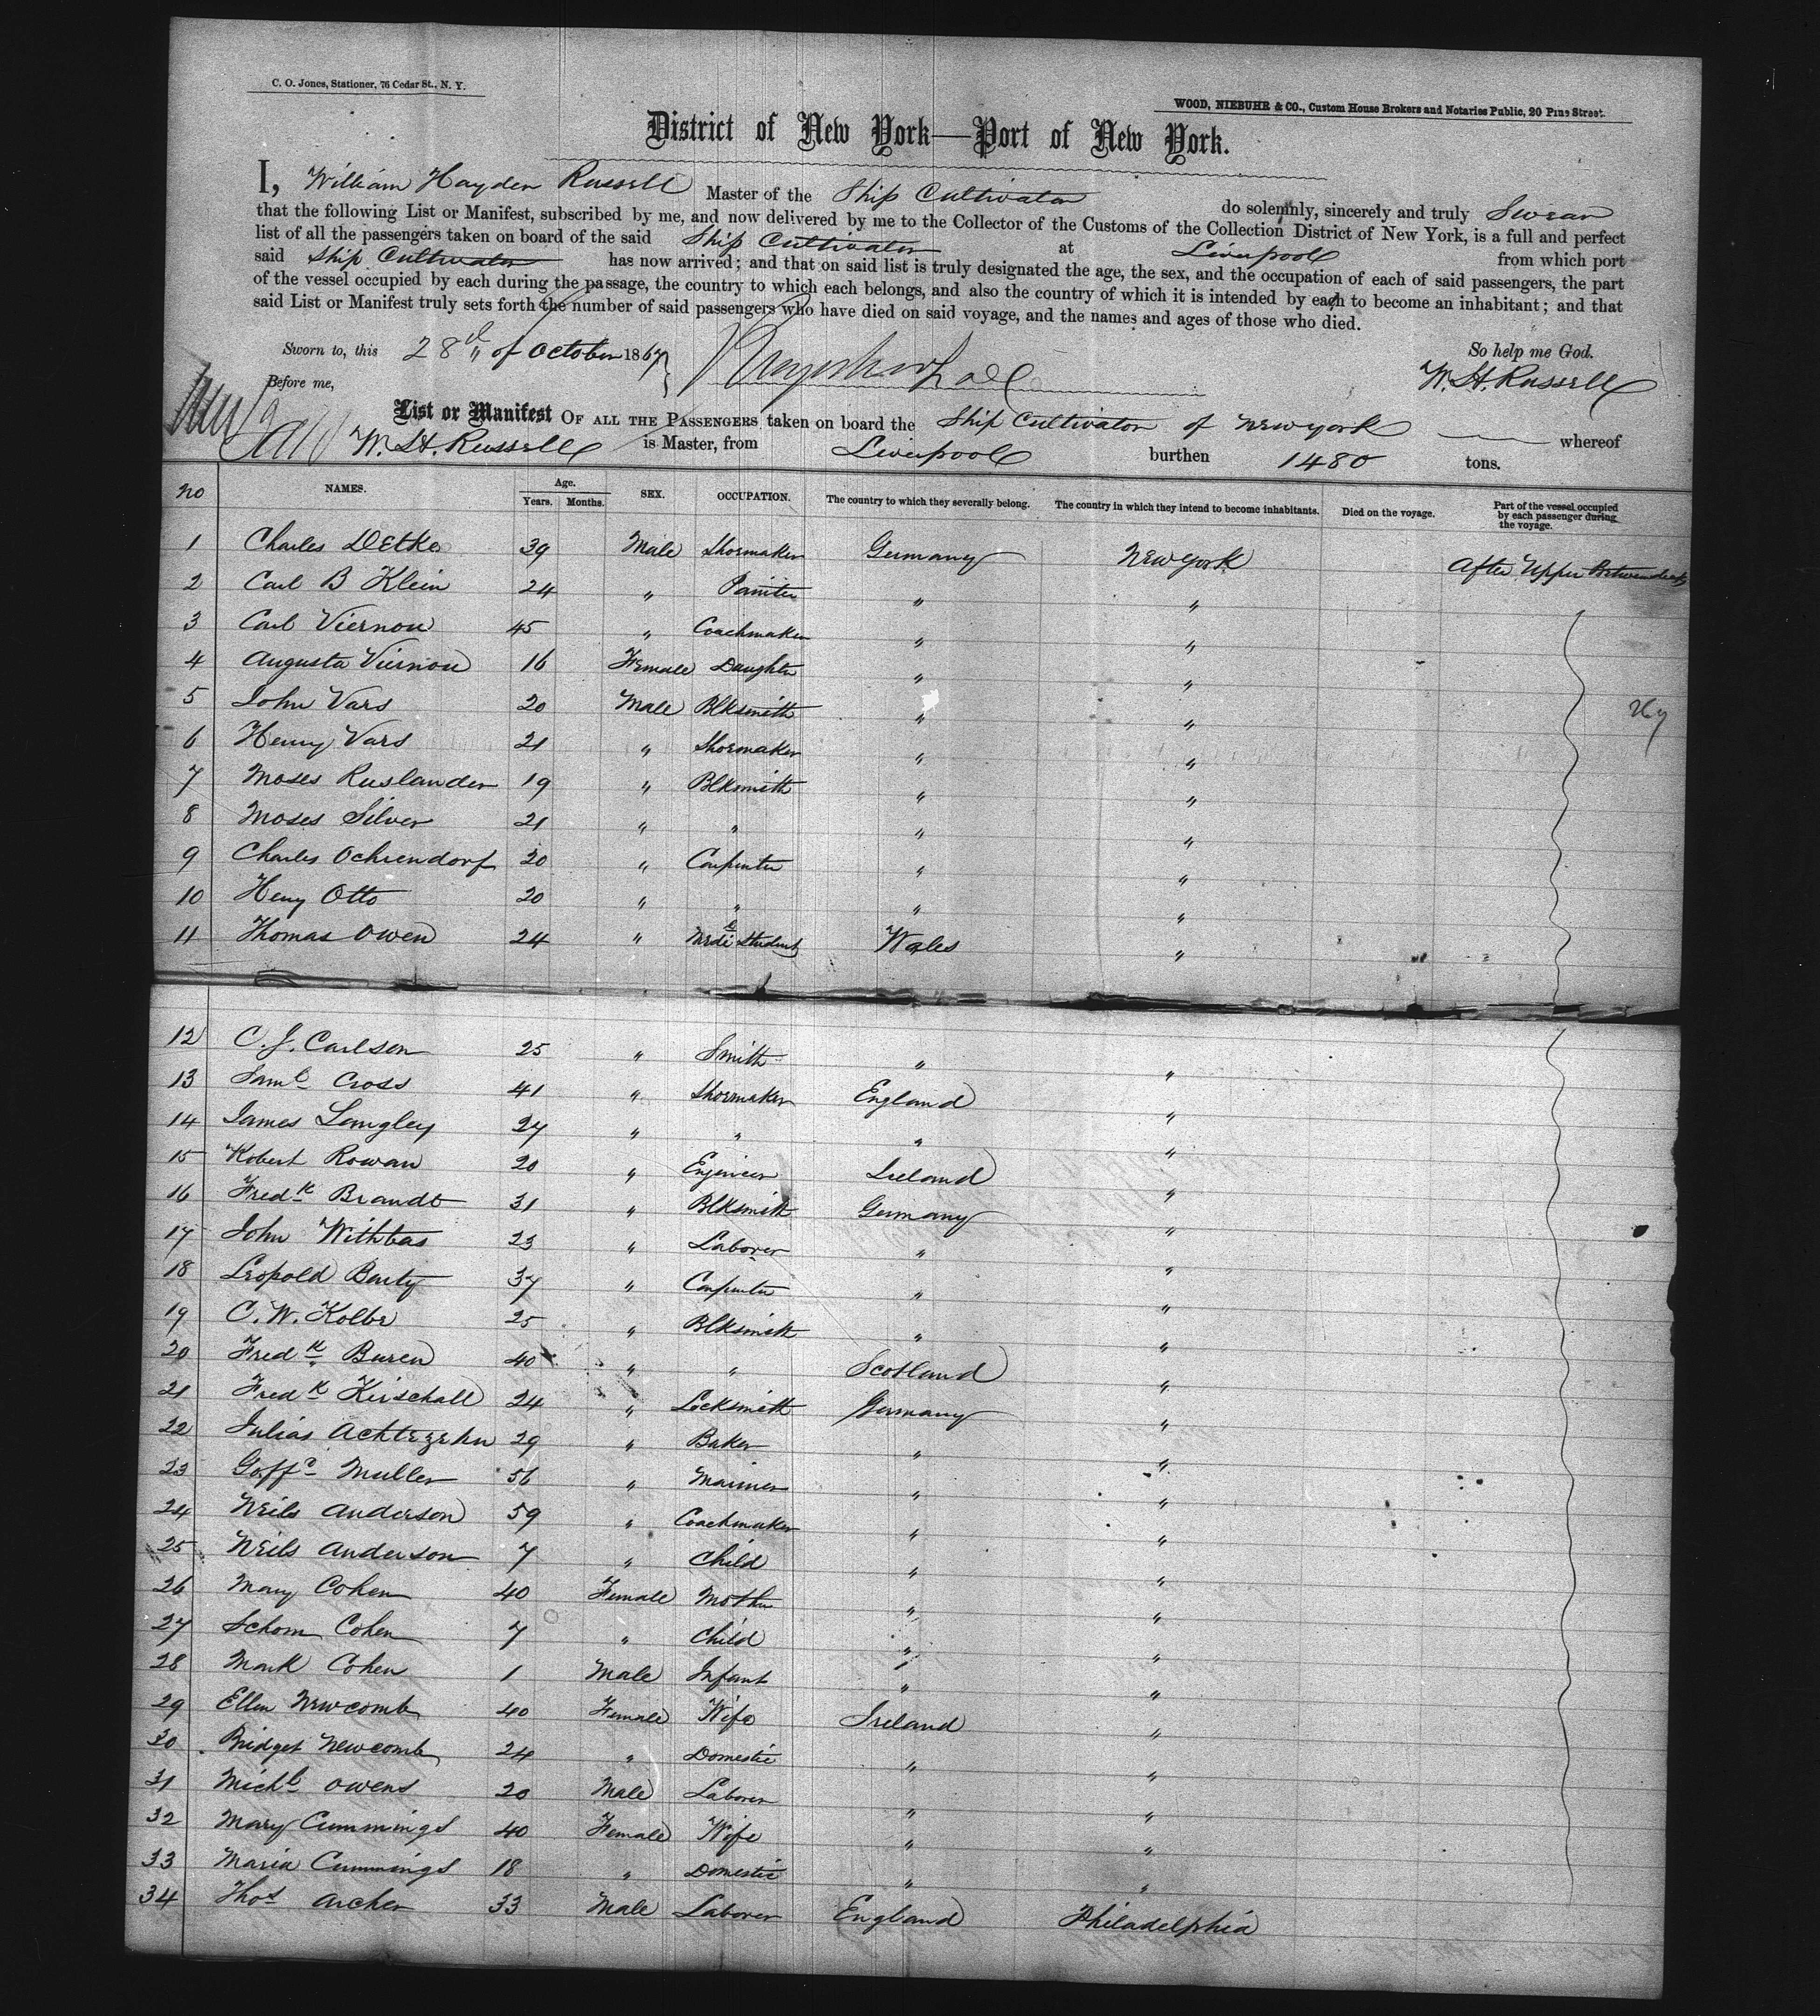 C. O. Jones, Stationer, 76 Cedar St., N. Y.
WOOD, NIEBUHR & CO., Custom House Brokers and Notaries Public, 20 Pine Street.
District of New York—Port of New York.
I, William Hayden Russell Master of the Ship Cultivator do solemnly, sincerely and truly Swear
that the following List or Manifest, subscribed by me, and now delivered by me to the Collector of the Customs of the Collection District of New York, is a full and perfect
list of all the passengers taken on board of the said Ship Cultivator at Liverpool from which port
said Ship Cultivator has now arrived; and that on said list is truly designated the age, the sex, and the occupation of each of said passengers, the part
of the vessel occupied by each during the passage, the country to which each belongs, and also the country of which it is intended by each to become an inhabitant; and that
said List or Manifest truly sets forth the number of said passengers who have died on said voyage, and the names and ages of those who died.
Sworn to, this 28th of October 1867
So help me God.
Before me,
W. H. Russell
List or Manifest OF ALL THE PASSENGERS taken on board the Ship Cultivator of New york whereof
W. H. Russell is Master, from Liverpool burthen 1480 tons.
No NAMES. Age. Years. Months. SEX. OCCUPATION. The country to which they severally belong. The country in which they intend to become inhabitants. Died on the voyage. Part of the vessel occupied by each passenger during the voyage.
1 Charles Detke 39 Male Shoemaker Germany New York After Upper Betweendecks
2 Carl B Klein 24 " Painter " "
3 Carl Viernou 45 " Coachmaker " "
4 Augusta Viernou 16 Female Daughter " "
5 John Vars 20 Male Blksmith " "
6 Henry Vars 21 " Shoemaker " "
7 Moses Ruslander 19 " Blksmith " "
8 Moses Silver 21 " " " "
9 Charles Ochsendorf 20 " Carpenter " "
10 Heny Otto 20 " " " "
11 Thomas Owen 24 " Student Wales "
12 C. J. Carlson 25 " Smith " "
13 Saml Cross 41 " Shoemaker England "
14 James Langley 27 " " " "
15 Robert Rowan 20 " Enjineer Ireland "
16 Fredk Brandt 31 " Blksmith Germany "
17 John Withbas 23 " Laborer " "
18 Leopold Barty 37 " Carpenter " "
19 C. W. Kolbe 25 " Blksmith " "
20 Fredk Buren 40 " " Scotland "
21 Fredk Kirschall 24 " Locksmith Germany "
22 Julias Achtezehn 29 " Baker " "
23 Goffd Muller 56 " Mariner " "
24 Neils Anderson 59 " Coachmaker " "
25 Neils Anderson 7 " Child " "
26 Mary Cohen 40 Female Mother " "
27 Schom Cohen 7 " Child " "
28 Mark Cohen 1 Male Infant " "
29 Ellen Newcomb 40 Female Wife Ireland "
30 Bridget Newcomb 24 " Domestic " "
31 Michl Owens 20 Male Laborer " "
32 Mary Cummings 40 Female Wife " "
33 Maria Cummings 18 " Domestic " "
34 Thos Archer 33 Male Laborer England Philadelphia